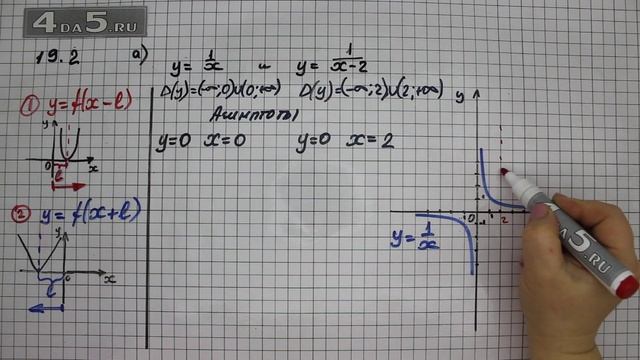 4DA5.RU
19.2 а) y = 1/x и y = 1/(x-2)
D(y)=(-∞;0)∪(0;+∞) D(y)=(-∞;2)∪(2;+∞)
Асимптоты
y=0 x=0 y=0 x=2
① y=f(x-l)
y
0
l
x
② y=f(x+l)
y
0
l
x
y
0
2
y = 1/x
4DA5.RU